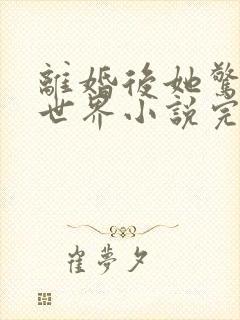 離婚後她驚
世界小説完
崔夢夕